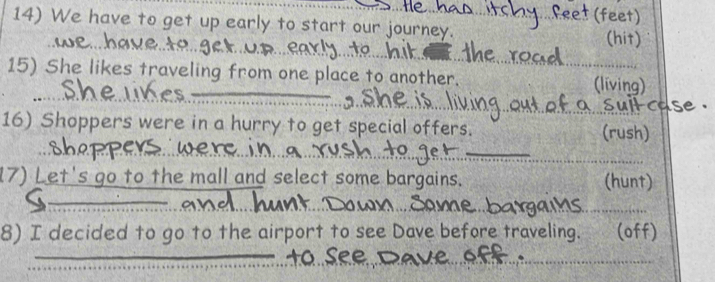 He has itchy feet (feet)
14) We have to get up early to start our journey. (hit)
we have to get up early to hit the road
15) She likes traveling from one place to another. (living)
She likes she is living out of a suitcase.
16) Shoppers were in a hurry to get special offers. (rush)
shoppers were in a rush to get
17) Let's go to the mall and select some bargains. (hunt)
and hunt Down some bargains
8) I decided to go to the airport to see Dave before traveling. (off)
to see Dave off.